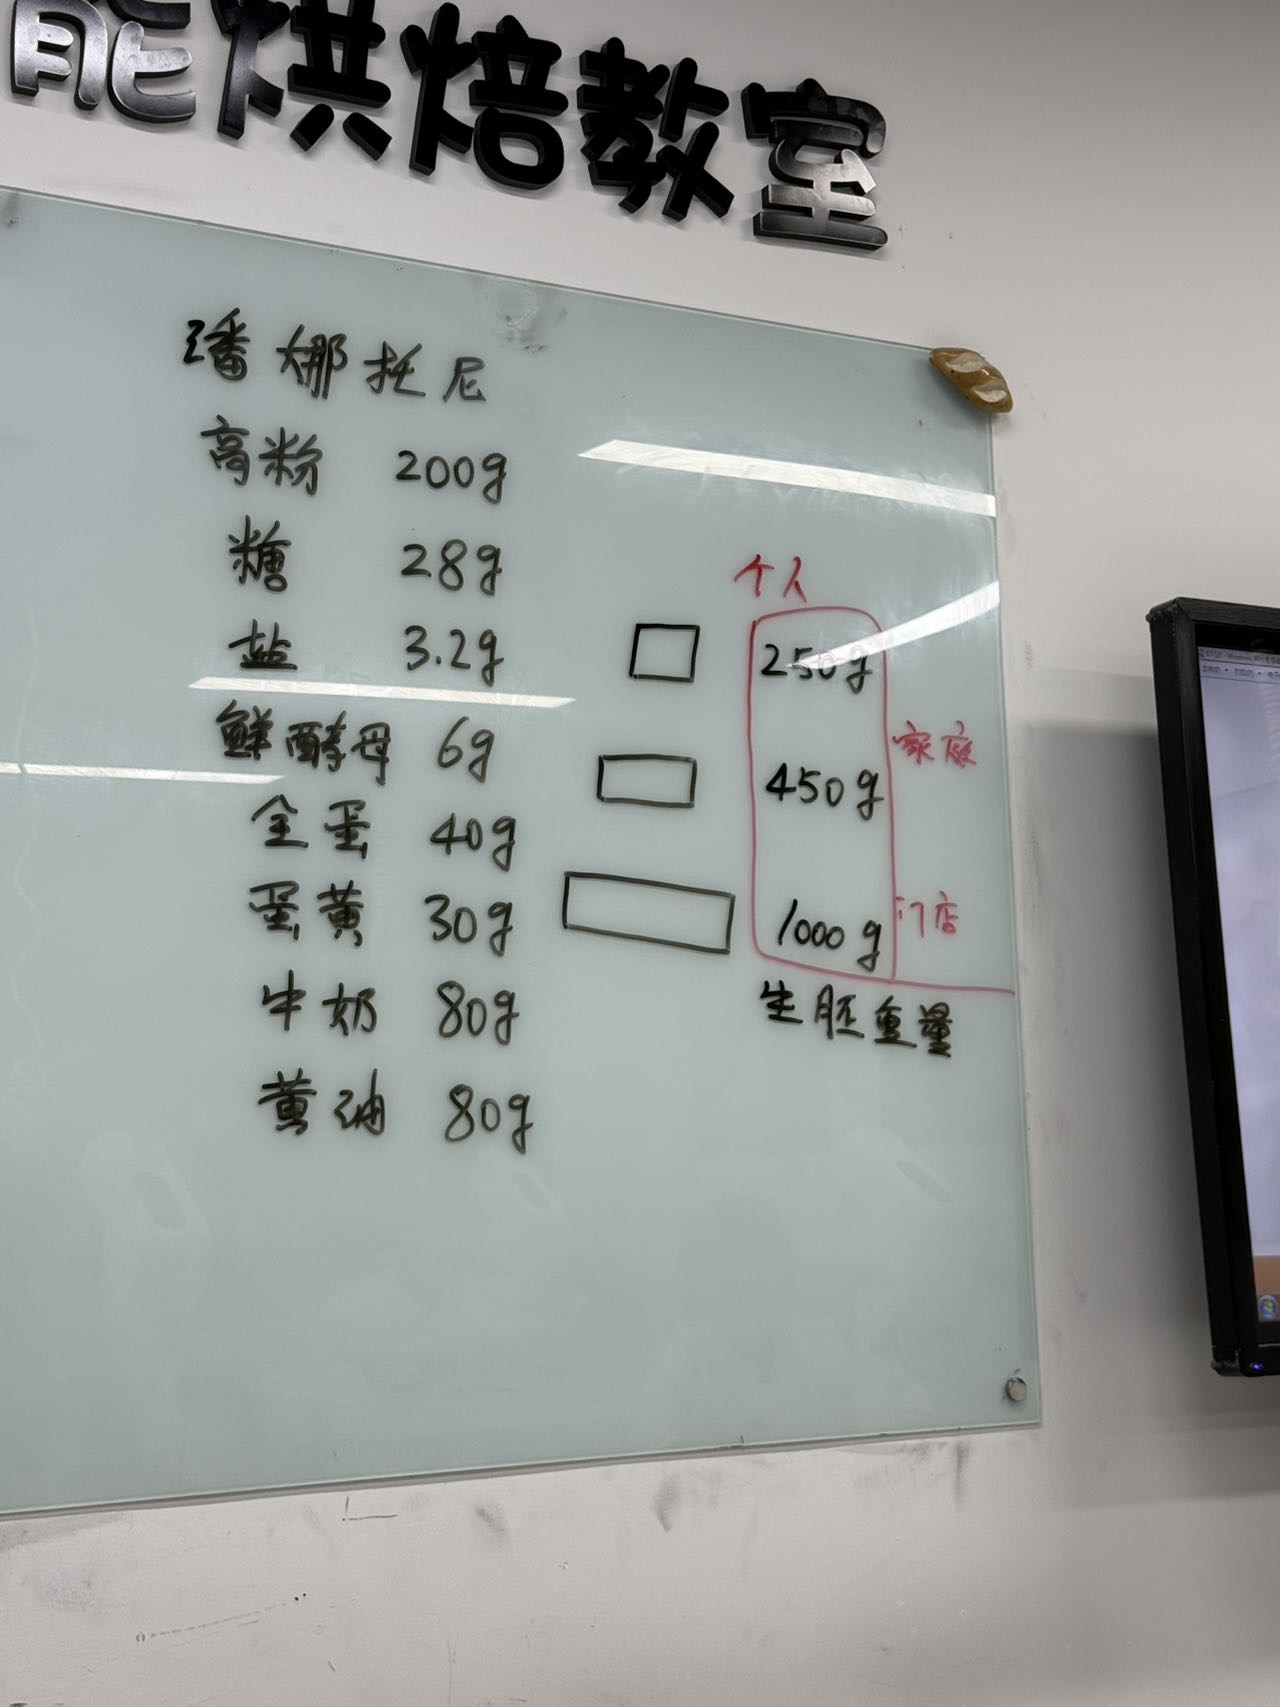 能烘焙教室
潘娜托尼
高粉 200g
糖 28g
盐 3.2g
鲜酵母 6g
全蛋 40g
蛋黄 30g
牛奶 80g
黄油 80g
个人
250g
家庭
450g
门店
1000g
生胚重量